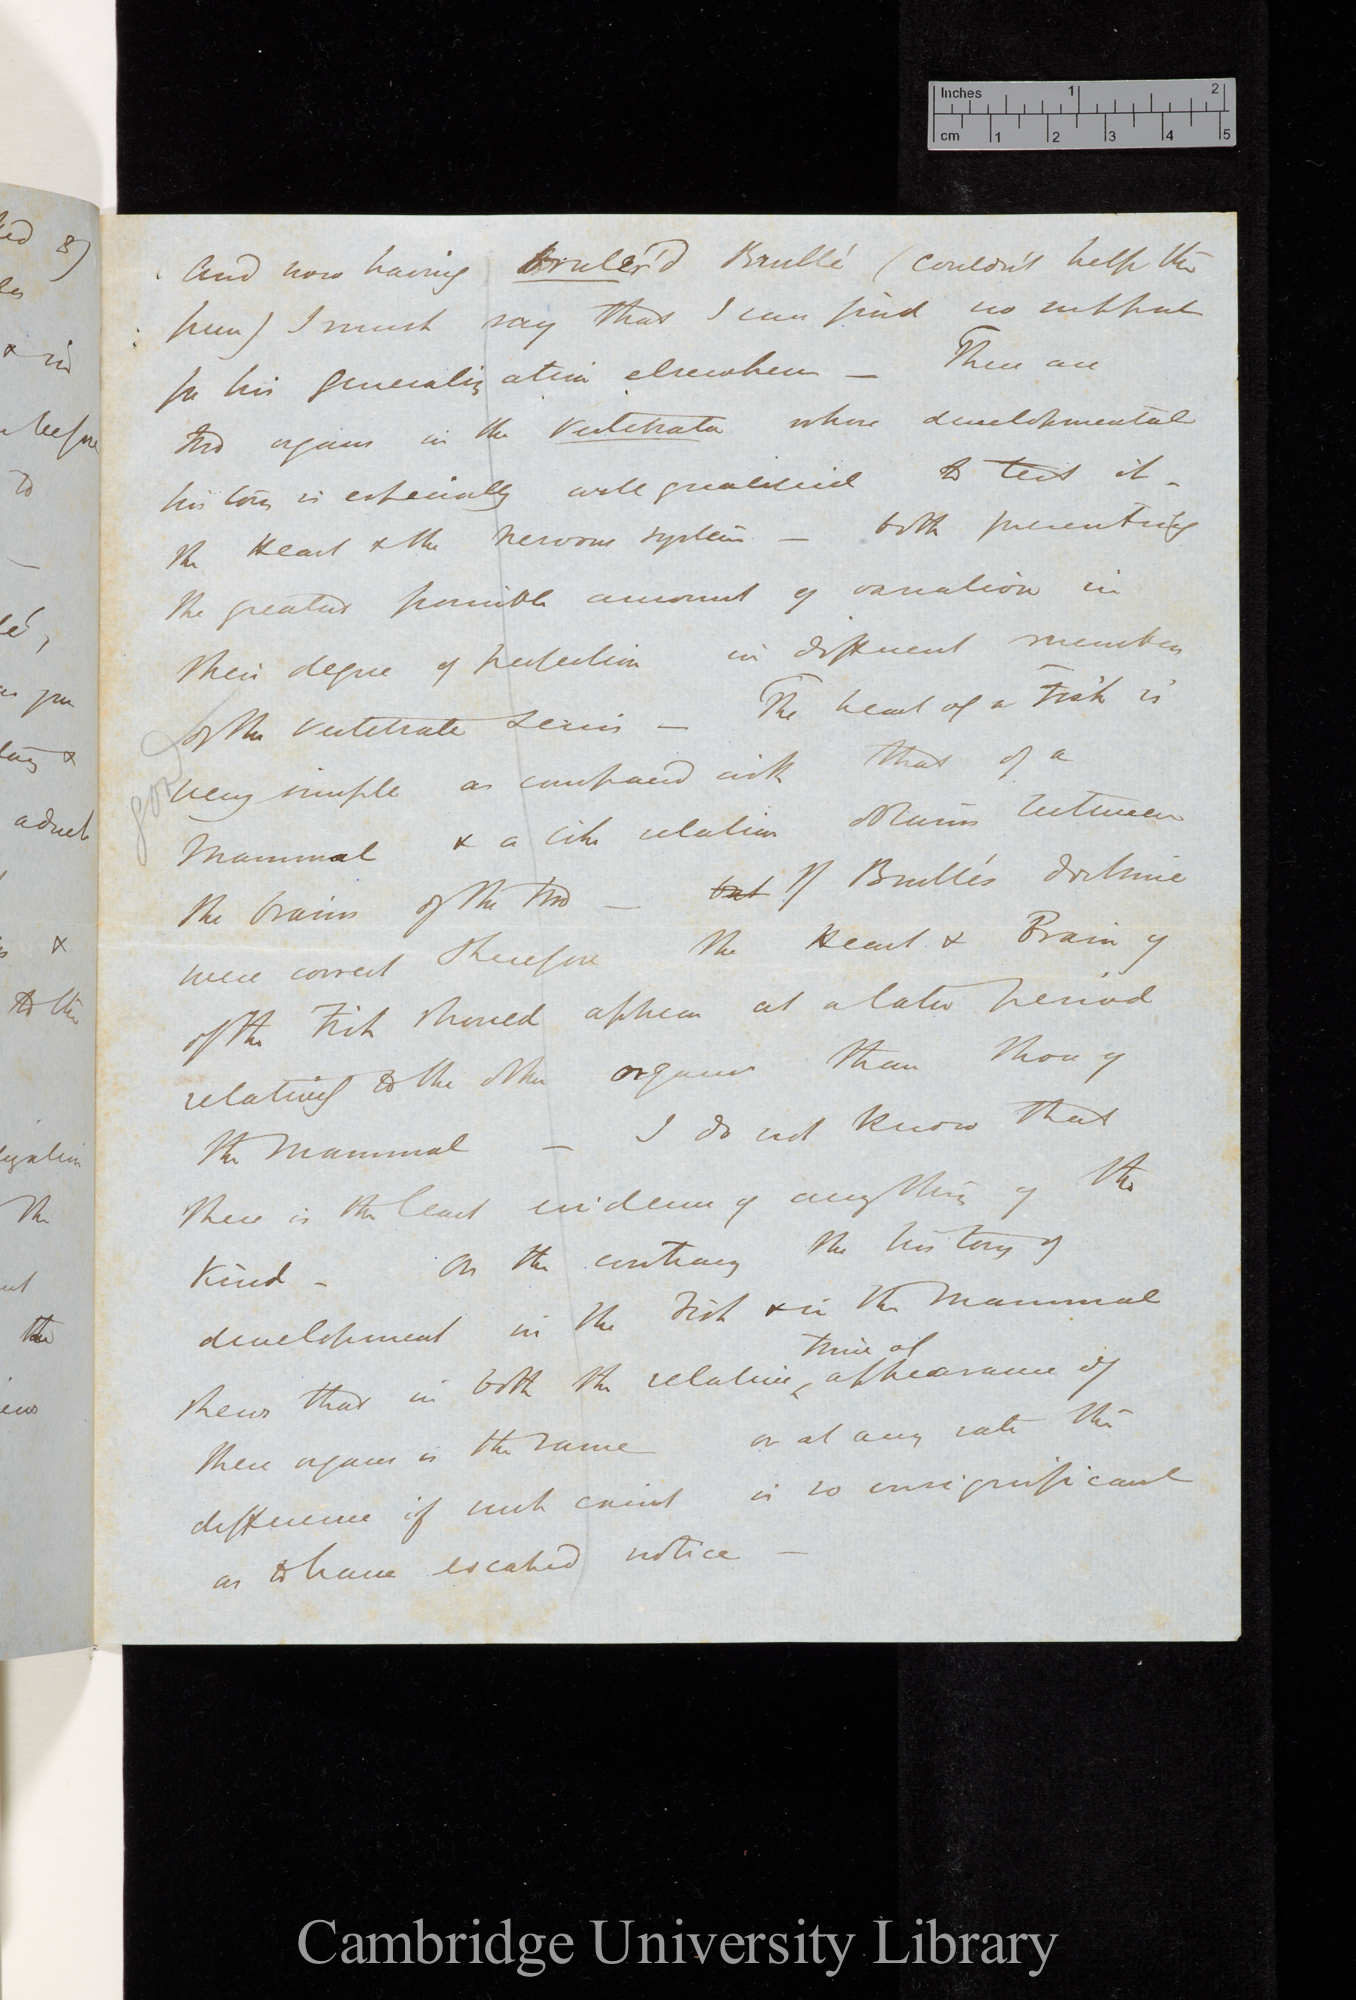 And now having brulér'd Brullé (couldn't help the
pun) I must say that I can find no support
for his generalization elsewhere — There are
two organs in the Vertebrata whose developmental
history is especially well qualified to test it –
the Heart & the nervous system — both presenting
the greatest possible amount of variation in
their degree of perfection in different members
of the vertebrate series — The heart of a Fish is
very simple as compared with that of a
good
Mammal & a like relation obtains between
the brains of the two — but If Brullé's doctrine
were correct therefore the Heart & Brain of
of the Fish should appear at a later period
relatively to the other organs than those of
the Mammal — I do not know that
there is the least evidence of anything of the
kind – On the contrary the history of
development in the Fish & in the Mammal
time of
shews that in both the relative appearance of
these organs is the same or at any rate the
difference if such exist is so insignificant
as to have escaped notice —
Inches 1 2
cm 1 2 3 4 5
8)
before
to
adult
&
to the
The
the
Cambridge University Library